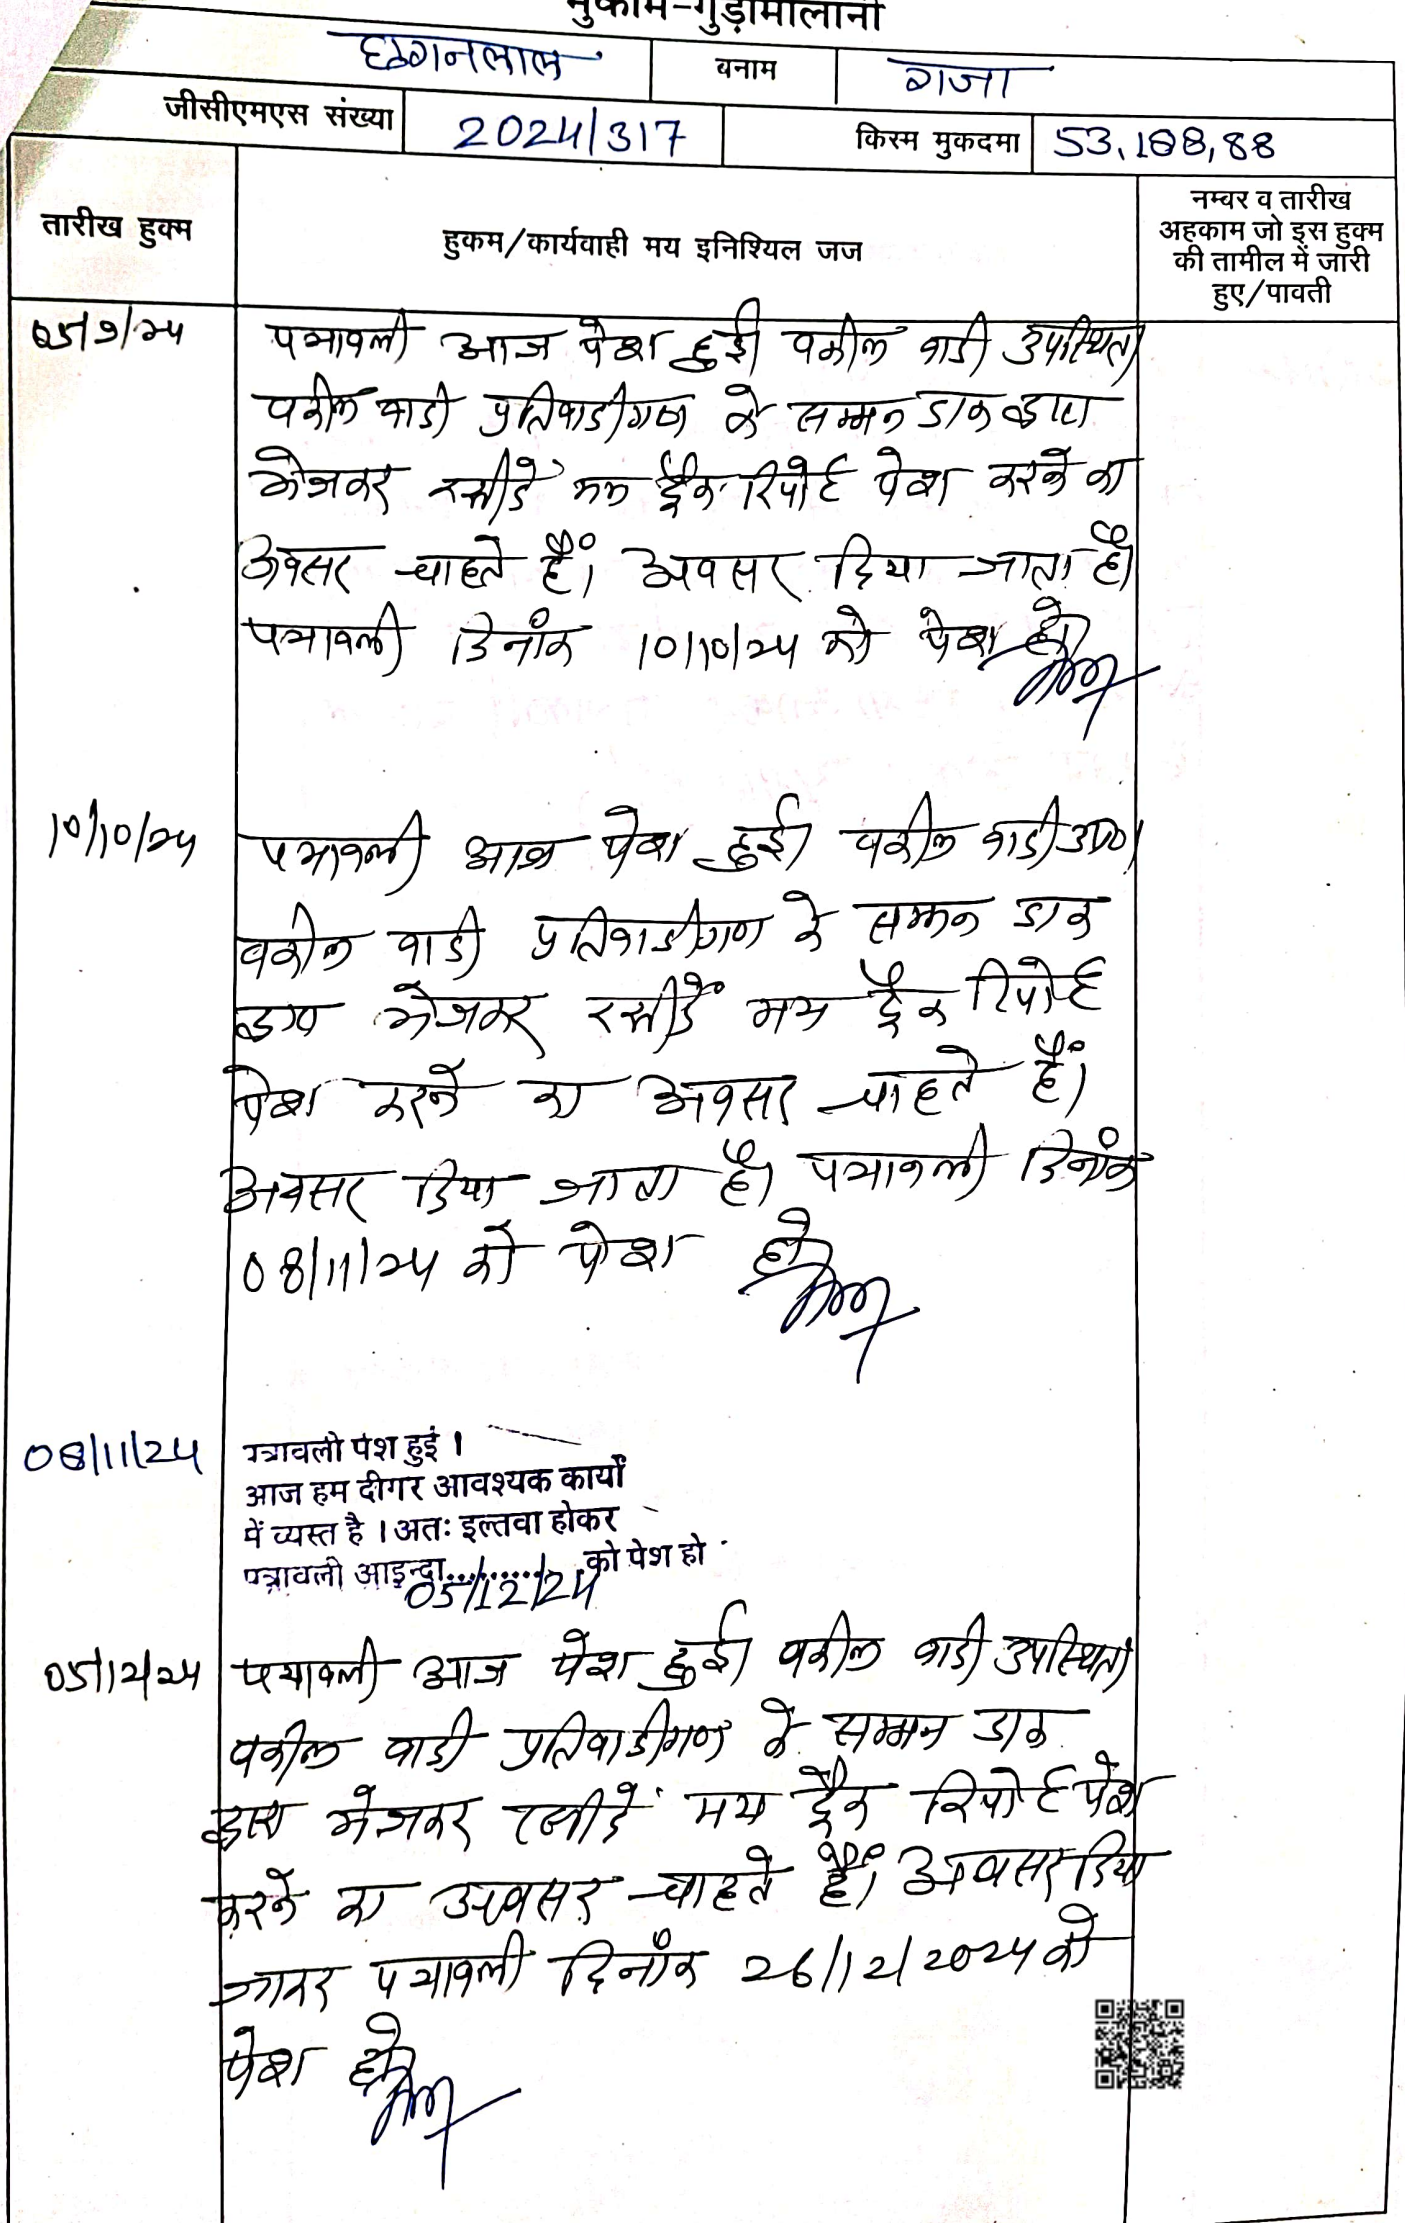 मुकाम-गुड़ामालानी
छगनलाल बनाम राजा
जीसीएमएस संख्या 2024/317 किस्म मुकदमा 53,188,88
तारीख हुक्म
हुकम/कार्यवाही मय इनिश्यिल जज
नम्बर व तारीख
अहकाम जो इस हुक्म
की तामील में जारी
हुए/पावती
05/9/24 पत्रावली आज पेश हुई। वकील वादी उपस्थित।
वकील वादी प्रतिवादीगण के सम्मन डाक द्वारा
भेजकर रसीदें मय ट्रैक रिपोर्ट पेश करने का
अवसर चाहते हैं। अवसर दिया जाता है।
पत्रावली दिनांक 10/10/24 को पेश हो।
10/10/24 पत्रावली आज पेश हुई। वकील वादी उप०।
वकील वादी प्रतिवादीगण के सम्मन डाक
द्वारा भेजकर रसीदें मय ट्रैक रिपोर्ट
पेश करने का अवसर चाहते हैं।
अवसर दिया जाता है। पत्रावली दिनांक
08/11/24 को पेश हो।
08/11/24 पत्रावली पेश हुई ।
आज हम दीगर आवश्यक कार्यों
में व्यस्त है । अतः इल्तवा होकर
पत्रावली आइन्दा 05/12/24 को पेश हो
05/12/24 पत्रावली आज पेश हुई। वकील वादी उपस्थित।
वकील वादी प्रतिवादीगण के सम्मन डाक
द्वारा भेजकर रसीदें मय ट्रैक रिपोर्ट पेश
करने का अवसर चाहते हैं। अवसर दिया
जाकर पत्रावली दिनांक 26/12/2024 को
पेश हो।